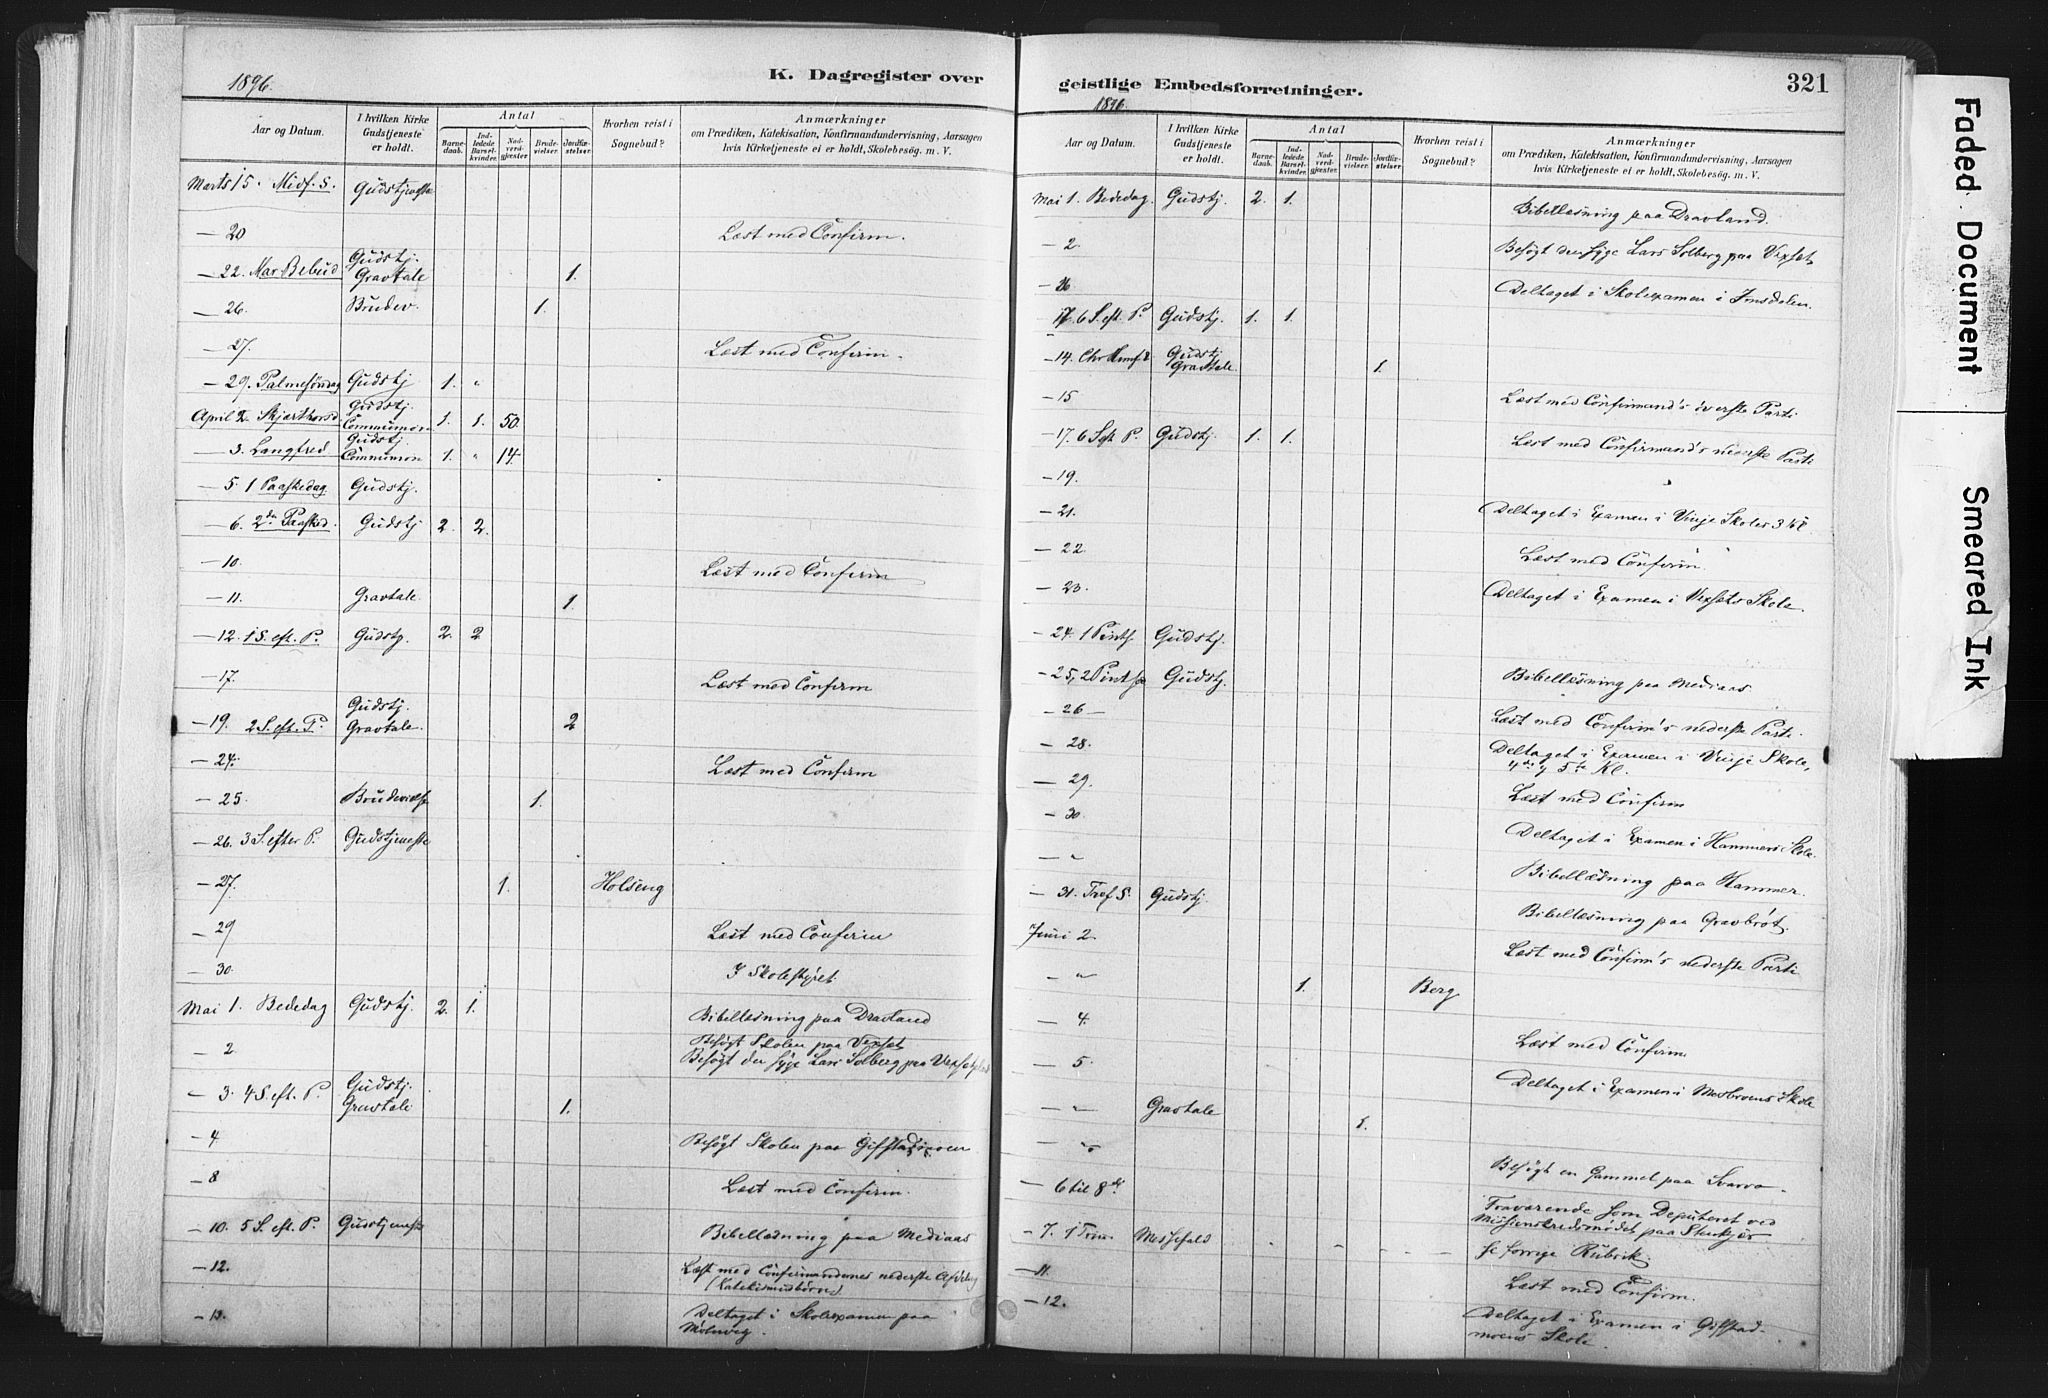 1896.
K. Dagregister over
Aar og Datum.
I hvilken Kirke Gudstjeneste er holdt.
Antal
Barnedaab.
Indledede Barselkvinder.
Nadverdgjæster.
Brudevielser.
Jordfæstelser.
Hvorhen reist i Sognebud?
Anmærkninger
om Prædiken, Katekisation, Konfirmandundervisning, Aarsagen
hvis Kirketjeneste ei er holdt, Skolebesøg. m. V.
Marts 15. Midf. S. Gudstjeneste
— 20 Læst med Confirm.
— 22. Mar. Bebud Gudstj. Gravtale 1.
— 26. Brudev. 1.
— 27. Læst med Confirm.
— 29. Palmesöndag Gudstj 1. "
April 2. Skjærthorsd Gudstj. Communion 1. 1. 50.
— 3. Langfred Gudstj. Communion 1. " 14.
— 5. 1 Paaskedag Gudstj.
— 6. 2den Paasked. Gudstj 2. 2.
— 10. Læst med Confirm
— 11. Gravtale. 1.
— 12. 1 S. eft. P. Gudstj. 2. 2
— 17. Læst med Confirm
— 19. 2 S. eft. P. Gudstj. Gravtale. 2
— 24. Læst med Confirm
— 25. Brudevielse 1.
— 26. 3 S. efter P. Gudstjeneste
— 27. 1. Holseng
— 29 Læst med Confirm
— 30. I Skolestyret
Mai 1. Bededag Gudstj. 2. 1. Bibellæsning paa Dravland
— 2 Besögt Skolen paa Vexset
Besögt den syge Lars Solberg paa
— 3. 4 S. eft. P. Gudstj. Gravtale 1.
— 4 Besögt Skolen paa Gifstadmoen
— 8 Læst med Confirm.
— 10. 5 S. eft. P. Gudstjeneste Bibellæsning paa Mediaas
— 12. Læst med Confirmandenes nederste Afdeling
(Katekismusbörn)
— 13. Deltaget i Skolexamen paa
geistlige Embedsforretninger.
321
1896.
Aar og Datum.
I hvilken Kirke Gudstjeneste er holdt.
Antal
Barnedaab.
Indledede Barselkvinder.
Nadverdgjæster.
Brudevielser.
Jordfæstelser.
Hvorhen reist i Sognebud?
Anmærkninger
om Prædiken, Katekisation, Konfirmandundervisning, Aarsagen
hvis Kirketjeneste ei er holdt, Skolebesøg. m. V.
Mai 1. Bededag. Gudstj. 2. 1. Bibellæsning paa Dravland.
— 2. Besögt den syge Lars Solberg paa Vexset
Deltaget i Skolexamen i Imsdalen.
17. 6 S. eft. P. Gudstj. 1. 1
— 14. Chr. Himf. Gudstj. Gravtale 1.
— 15 Læst med Confirmand's överste Parti
— 17. 6 S. eft P. Gudstj. 1. 1. Læst med Confirmand's nederste Parti
— 19.
— 21. Deltaget i Examen i Vinje Skoles 3
— 22 Læst med Confirm.
— 23. Deltaget i Examen i Vexsets Skole.
— 24. 1 Pints. Gudstj.
— 25, 2 Pintse Gudstj. Bibellæsning paa Mediaas
— 26 — Læst med Confirm's nederste Parti.
— 28. Deltaget i Examen i Vinje Skole,
4de & 5te Kl.
— 29. Læst med Confirm
— 30 Deltaget i Examen i Hammers Skole.
— " Bibellæsning paa Hammer.
— 31. Tref. S. Gudstj. Bibellæsning paa Gravbröt.
Juni 2. Læst med Confirm's nederste Parti
— " 1. Berg
— 4. Læst med Confirm
— 5. Deltaget i Examen i Mosbroens Skole
— " Gravtale 1.
— " Besögt en Gammel paa Svarva.
— 6 til 8de Fraværende som Deputeret ved
Missionskredsmödet paa Stenkjær
— 7. 1 Trin. Messefald - - - - - Se forrige Rubrik.
— 11. Læst med Confirm.
— 12. Deltaget i Examen i Gifstad-
moens Skole.
Faded Document
Smeared Ink